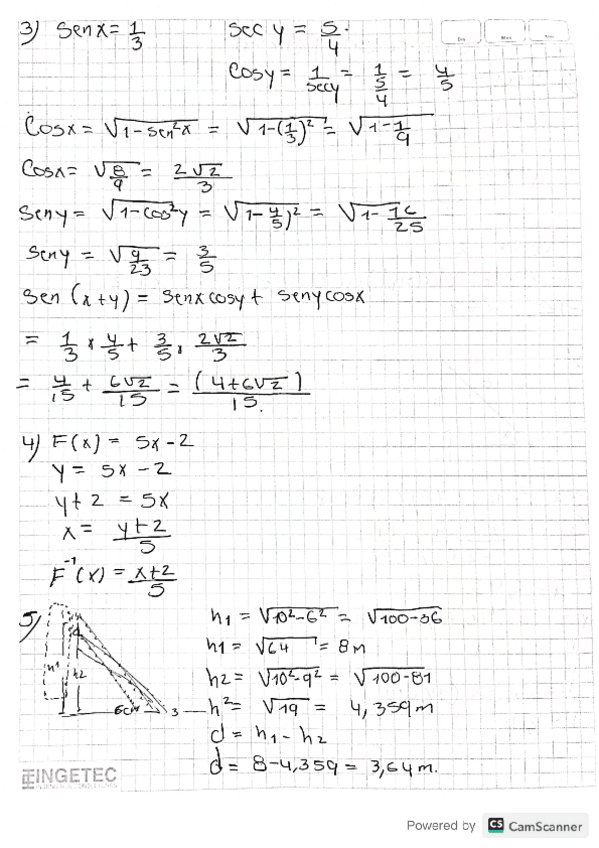 3) Sen x = 1/3   sec y = 5/4.
Cos y = 1/sec y = 1/(5/4) = 4/5
Cos x = √(1-sen²x) = √(1-(1/3)²) = √(1-1/9)
Cos x = √(8/9) = 2√2/3
Sen y = √(1-cos²y) = √(1-4/5)² = √(1-16/25)
Sen y = √(9/23) = 3/5
Sen (x+y) = Sen x cos y + sen y cos x
= 1/3 × 4/5 + 3/5 × 2√2/3
= 4/15 + 6√2/15 = (4+6√2)/15.
4) F(x) = 5x-2
y = 5x-2
y+2 = 5x
x = (y+2)/5
F⁻¹(x) = (x+2)/5
5)
h1
h2
6cm
3
h1 = √(10²-6²) = √(100-36)
h1 = √64 = 8m
h2 = √(10²-9²) = √(100-81)
h² = √19 = 4,359m
d = h1 - h2
d = 8-4,359 = 3,64m.
INGETEC
Powered by CS CamScanner